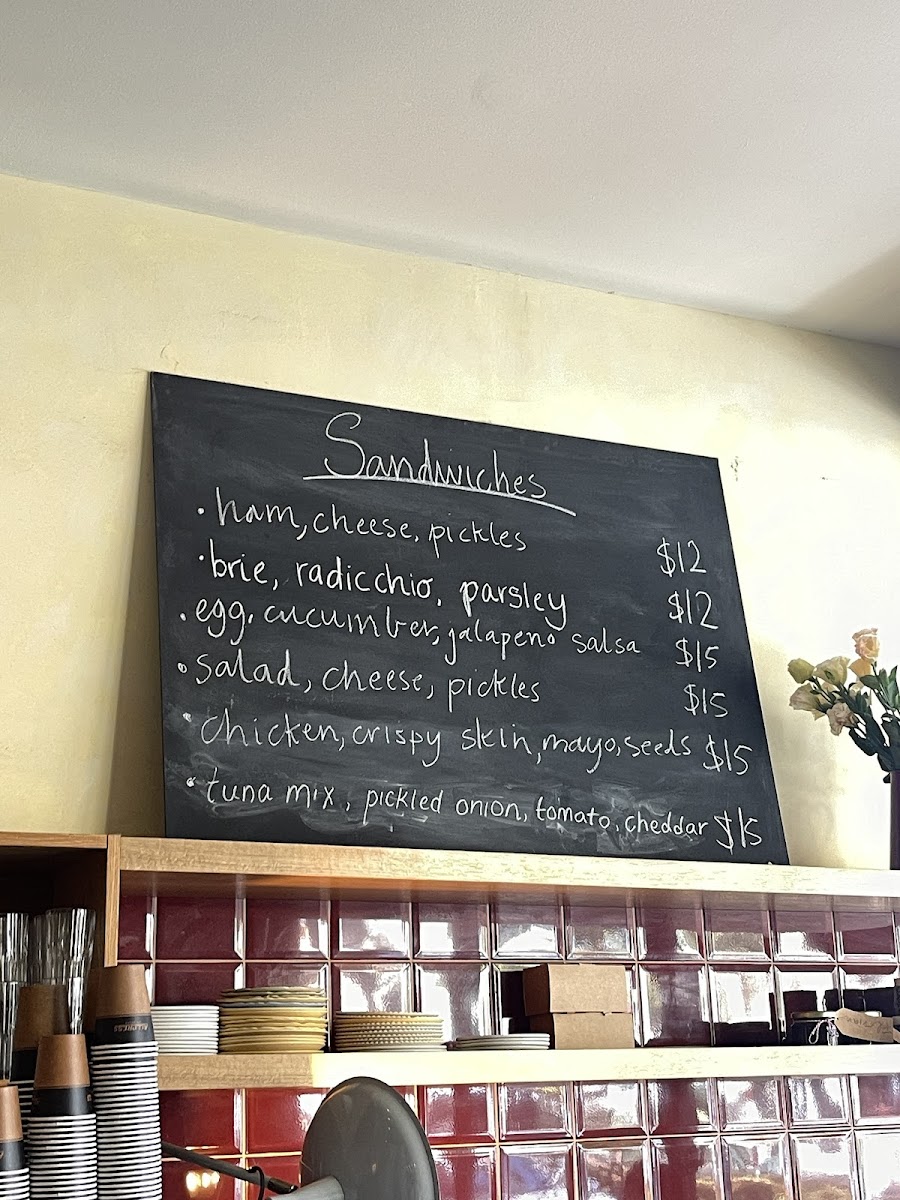 Sandwiches
• ham, cheese, pickles $12
• brie, radicchio, parsley $12
• egg, cucumber, jalapeno salsa $15
• salad, cheese, pickles $15
• chicken, crispy skin, mayo, seeds $15
• tuna mix, pickled onion, tomato, cheddar $15